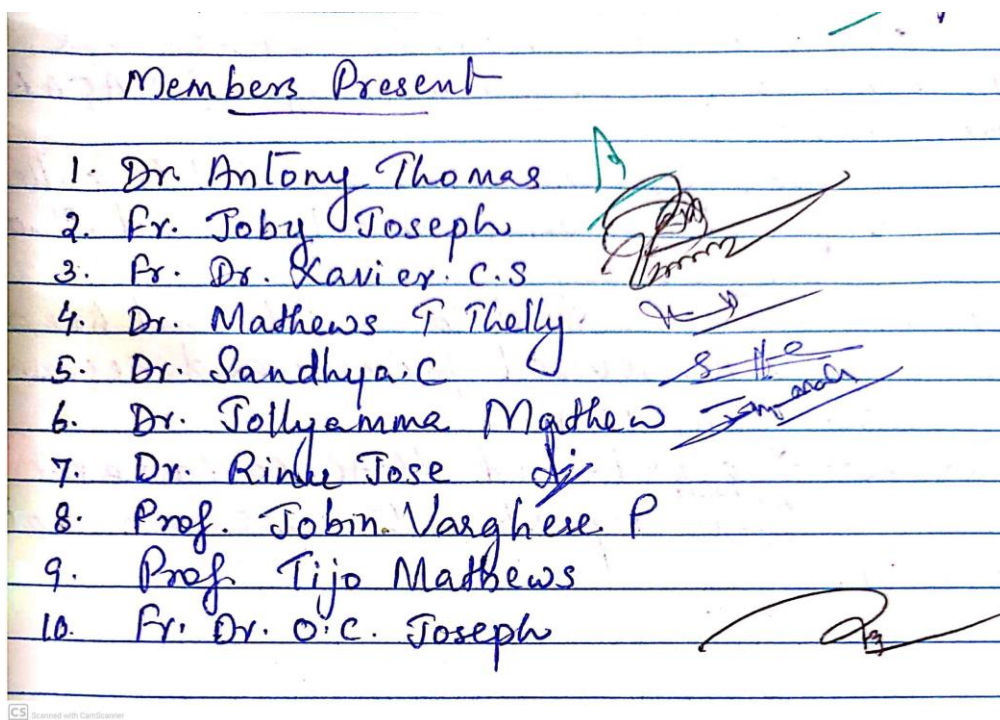 Members Present
1. Dr. Antony Thomas
2. Fr. Joby Joseph
3. Fr. Dr. Xavier. C.S
4. Dr. Mathews T Thelly.
5. Dr. Sandhya. C
6. Dr. Jollyamma Mathew
7. Dr. Rinku Jose
8. Prof. Jobin Varghese. P
9. Prof. Tijo Mathews
10. Fr. Dr. O.C. Joseph
CS Scanned with CamScanner